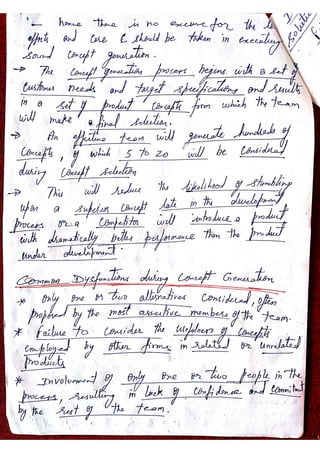 - hence there is no excuse for the
efforts and care & should be taken in executing
sound concept generation.
→ The concept generation process begins with a set of
customer needs and target specifications and results
in a set of product concepts from which the team
will make a final selection.
→ An effective team will generate hundreds of
concepts, of which 5 to 20 will be considered
during concept selection
→ This will reduce the likelihood of stumbling
upon a superior concept late in the development
process or a competitor will introduce a product
with dramatically better performance than the product
under development.
Common Dysfunctions during Concept Generation
* only one or two alternatives considered, often
proposed by the most assertive members of the team.
* Failure to consider the usefulness of concepts
employed by other firms in related or unrelated
products
* Involvement of only one or two people in the
process, resulting in lack of confidence and commitment
by the rest of the team.